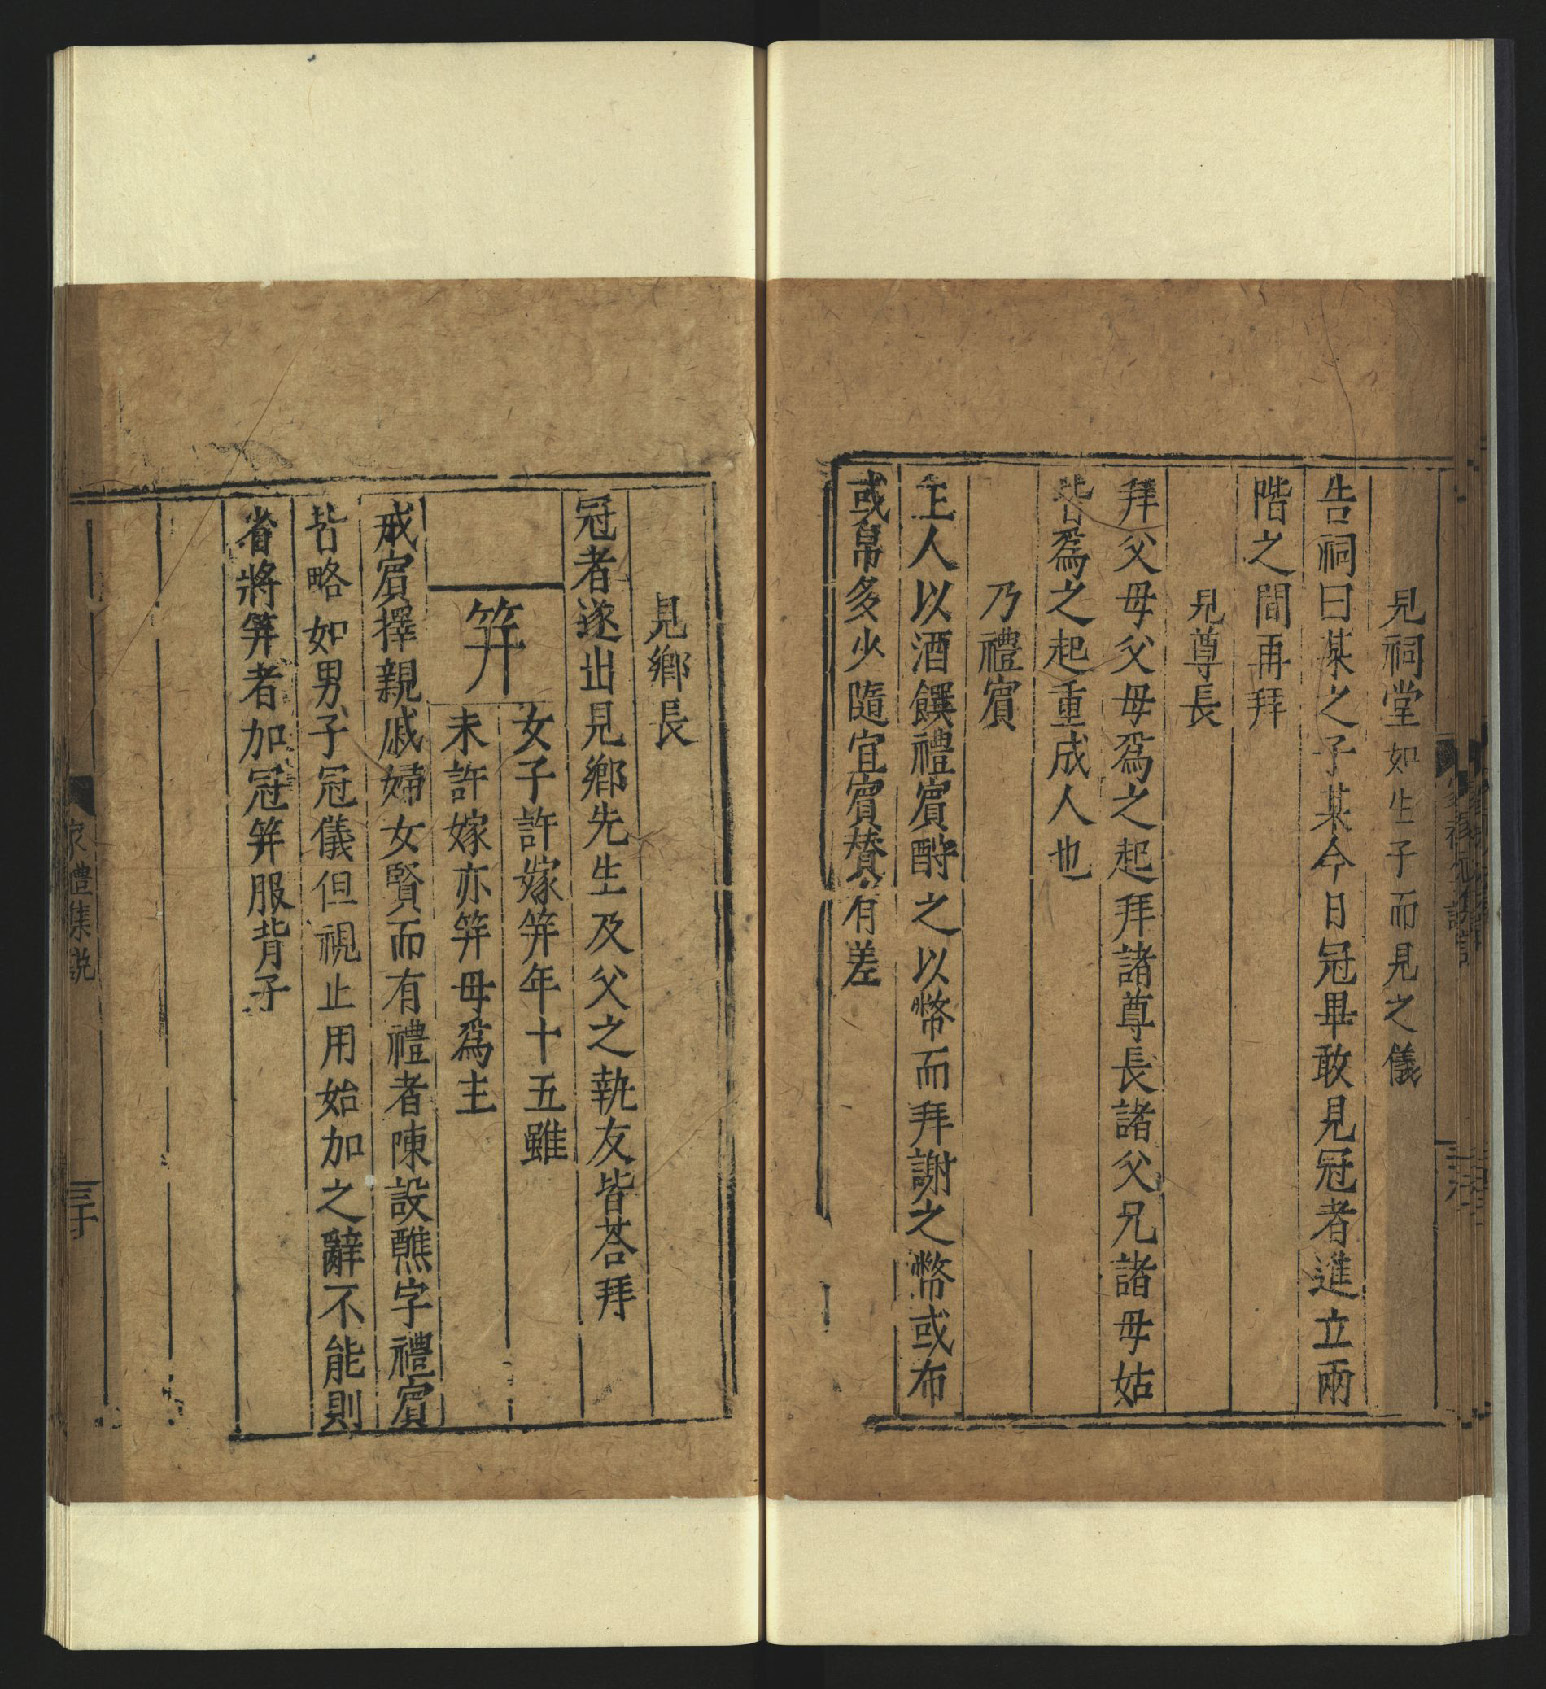 見祠堂如生子而見之儀
告祠曰某之子某今日冠畢敢見冠者進立兩
階之間再拜
見尊長
拜父母父母爲之起拜諸尊長諸父兄諸母姑
皆爲之起重成人也
乃禮賔
主人以酒饌禮賔酧之以幣而拜謝之幣或布
或帛多少隨宜賔賛有差
見鄉長
冠者遂出見鄉先生及父之執友皆荅拜
筓
女子許嫁筓年十五雖
未許嫁亦筓母爲主
戒賔擇親戚婦女賢而有禮者陳設醮字禮賔
皆略如男子冠儀但視止用始加之辭不能則
省將筓者加冠筓服背子
家禮集説
三十